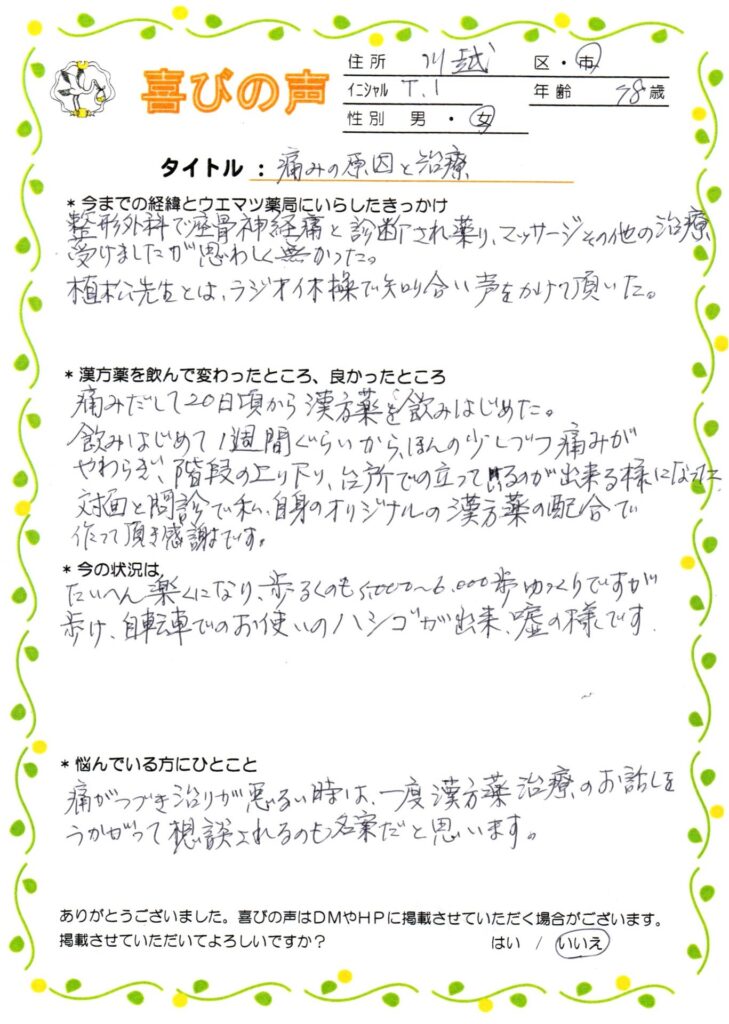 喜びの声
住所 川越 区・市
イニシャル T.I 年齢 78歳
性別 男・女
タイトル：痛みの原因と治療
*今までの経緯とウエマツ薬局にいらしたきっかけ
整形外科で座骨神経痛と診断され薬り、マッサージその他の治療
受けましたが思わしく無かった。
植松先生とは、ラジオ体操で知り合い声をかけて頂いた。
*漢方薬を飲んで変わったところ、良かったところ
痛みだして20日頃から漢方薬を飲みはじめた。
飲みはじめて1週間ぐらいから、ほんの少しづつ痛みが
やわらぎ、階段の上り下り、台所での立っているのが出来る様になった
対面と問診で私、自身のオリジナルの漢方薬の配合で
作って頂き感謝です。
*今の状況は
たいへん楽くになり、歩るくのも5,000〜6,000歩ゆっくりですが
歩け、自転車でのお使いのハシゴが出来、嘘の様です.
*悩んでいる方にひとこと
痛がつづき治りが悪るい時は、一度漢方薬治療のお話しを
うかがって想談されるのも名案だと思います。
ありがとうございました。喜びの声はDMやHPに掲載させていただく場合がございます。
掲載させていただいてよろしいですか？ はい / いいえ